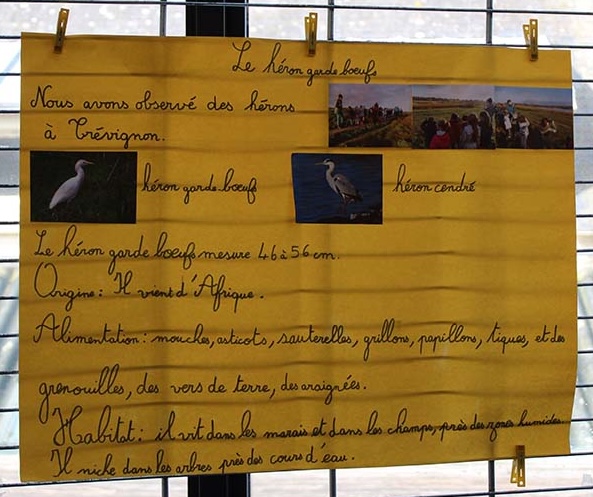 Le héron garde bœufs
Nous avons observé des hérons
à Trévignon.
héron garde-bœufs
héron cendré
Le héron garde bœufs mesure 46 à 56 cm.
Origine : Il vient d'Afrique.
Alimentation : mouches, asticots, sauterelles, grillons, papillons, tiques, et des
grenouilles, des vers de terre, des araignées.
Habitat : il vit dans les marais et dans les champs, près des zones humides.
Il niche dans les arbres près des cours d'eau.